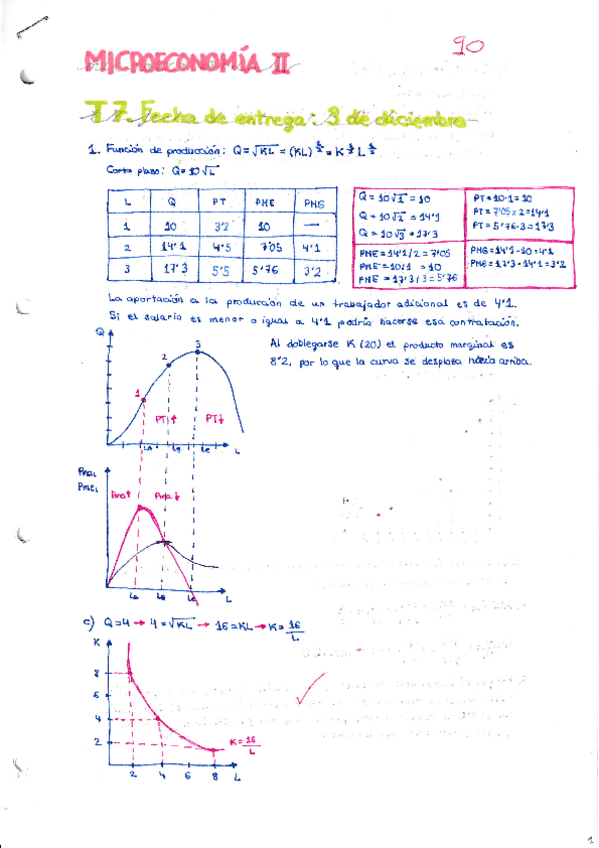 90
MICROECONOMÍA II
T7. Fecha de entrega: 3 de diciembre
1. Función de producción: Q=√KL = (KL)^½ = K^½ L^½
Corto plazo: Q=10√L
L Q PT PME PMG
1 10 3'2 10 —
2 14'1 4'5 7'05 4'1
3 17'3 5'5 5'76 3'2
Q = 10√1 = 10
Q = 10√2 = 14'1
Q = 10√3 = 17'3
PT = 10·1 = 10
PT = 7'05 x 2 = 14'1
PT = 5'76·3 = 17'3
PME = 14'1/2 = 7'05
PME = 10/1 = 10
PME = 17'3/3 = 5'76
PMG = 14'1 - 10 = 4'1
PMG = 17'3 - 14'1 = 3'2
La aportación a la producción de un trabajador adicional es de 4'1.
Si el salario es menor o igual a 4'1 podría hacerse esa contratación.
Al doblegarse K (20) el producto marginal es
8'2, por lo que la curva se desplaza hacia arriba.
Q
1 2 3
PT↑ PT↓
La Lb Lc L
La Lb Lc L
c) Q=4 → 4=√KL → 16=KL → K=16/L
K
8
6
4
2
K=16/L
2 4 6 8 L
1